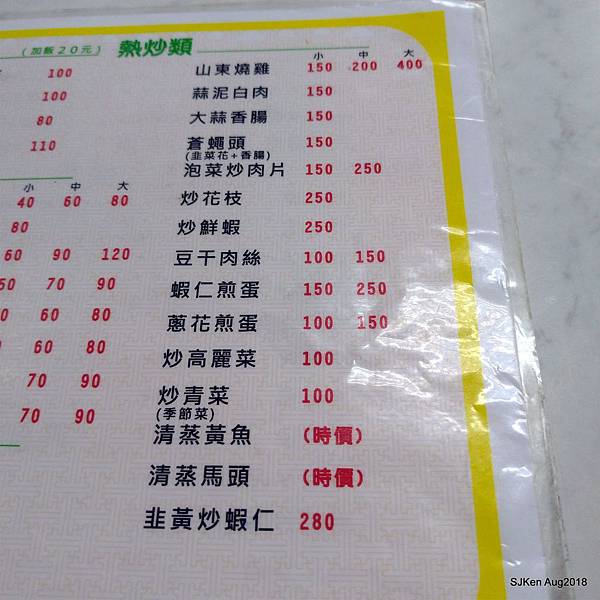 (加飯20元) 熱炒類
小 中 大
100 山東燒雞 150 200 400
100 蒜泥白肉 150
80 大蒜香腸 150
110 蒼蠅頭 150
(韭菜花+香腸)
泡菜炒肉片 150 250
小 中 大
40 60 80 炒花枝 250
80 炒鮮蝦 250
60 90 120 豆干肉絲 100 150
50 70 90 蝦仁煎蛋 150 250
60 80 蔥花煎蛋 100 150
60 80 炒高麗菜 100
70 90 炒青菜 100
(季節菜)
70 90 清蒸黃魚 (時價)
清蒸馬頭 (時價)
韭黃炒蝦仁 280
SJKen Aug2018